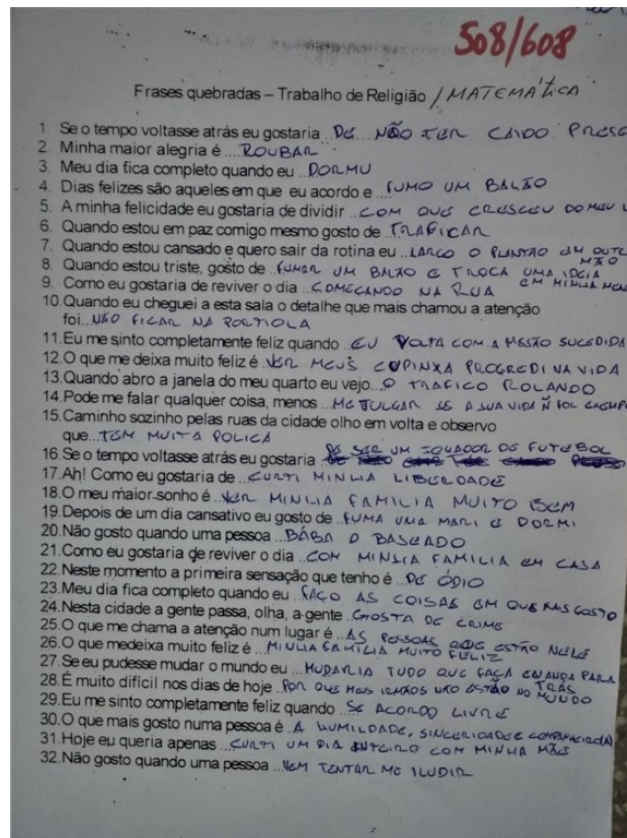 508/608
Frases quebradas – Trabalho de Religião / MATEMÁTICA
1. Se o tempo voltasse atrás eu gostaria ..DE.. NÃO TER CAIDO PRESO
2. Minha maior alegria é ....ROUBAR
3. Meu dia fica completo quando eu ..DORMU
4. Dias felizes são aqueles em que eu acordo e ....FUMO UM BALÃO
5. A minha felicidade eu gostaria de dividir ...COM QUE CRESCEU DO MEU L
6. Quando estou em paz comigo mesmo gosto de ..TRAFICAR
7. Quando estou cansado e quero sair da rotina eu ..LARGO O PLANTÃO EM OUTR
MÃO
8. Quando estou triste, gosto de ..FUMAR UM BALÃO E TROCA UMA IDEIA
9. Como eu gostaria de reviver o dia ...COMECANDO NA RUA EM MINHA MEN
10.Quando eu cheguei a esta sala o detalhe que mais chamou a atenção
foi..NÃO FICAR NA PORTIOLA
11.Eu me sinto completamente feliz quando ..EU VOLTA COM A MISÃO SUCEDIDA
12.O que me deixa muito feliz é ..VER MEUS CUPINXA PROGREDI NA VIDA
13.Quando abro a janela do meu quarto eu vejo...O TRAFICO ROLANDO
14 Pode me falar qualquer coisa, menos ...ME JULGAR SE A SUA VIDA Ñ FOI EXEMPL
15.Caminho sozinho pelas ruas da cidade olho em volta e observo
que...TEM MUITA POLICA
16.Se o tempo voltasse atrás eu gostaria DE SER UM JOGADOR DE FUTEBOL
17.Ah! Como eu gostaria de ..CURTI MINHA LIBERDADE
18.O meu maior sonho é ..VER MINHA FAMILIA MUITO BEM
19.Depois de um dia cansativo eu gosto de ..FUMA UMA MARI E DORMI
20.Não gosto quando uma pessoa ..BÁBA O BASEADO
21.Como eu gostaria de reviver o dia ..COM MINHA FAMILIA EM CASA
22.Neste momento a primeira sensação que tenho é ..DE ÓDIO
23.Meu dia fica completo quando eu ..FAÇO AS COISAS EM QUE MAIS GOSTO
24.Nesta cidade a gente passa, olha, a gente ..GOSTA DE CRIME
25.O que me chama a atenção num lugar é ..AS PESSOAS QUE ESTÃO NELE
26.O que medeixa muito feliz é ..MINHA FAMILIA MUITO FELIZ
27.Se eu pudesse mudar o mundo eu ...MUDARIA TUDO QUE FAÇA PARA
TRÁS
28.É muito difícil nos dias de hoje ..POR QUE MEUS IRMÃOS NÃO ESTÃO NO MUNDO
29.Eu me sinto completamente feliz quando ..SE ACORDO LIVRE
30.O que mais gosto numa pessoa é ..A HUMILDADE, SINCERIDADE E COMPANHEIRO(A)
31.Hoje eu queria apenas ..CURTI UM DIA INTEIRO COM MINHA MÃE
32.Não gosto quando uma pessoa ..VEM TENTAR ME ILUDIR